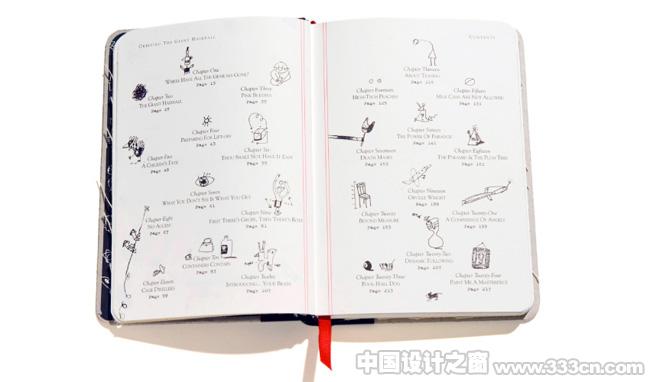 ORBITING THE GIANT HAIRBALL
Chapter One
WHERE HAVE ALL THE GENIUSES GONE?
Page 15
Chapter Two
THE GIANT HAIRBALL
Page
Chapter Three
PINK BUDDHA
Page
Chapter Four
PREPARING FOR LIFT-OFF
Page 43
Chapter Five
A CHICKEN'S FATE
Page
Chapter Six
THOU SHALT NOT HAVE IT EASY
Page
Chapter Seven
WHAT YOU DON'T SEE IS WHAT YOU GET
Page 61
Chapter Eight
NO ACCESS
Page
Chapter Nine
FIRST THERE'S GROPE, THEN THERE'S ROTE
Page 81
Chapter Ten
CONTAINERS CONTAIN
Page 93
Chapter Eleven
CAGE DWELLERS
Page 99
Chapter Twelve
INTRODUCING... YOUR BRAIN
Page 103
CONTENTS
Chapter Thirteen
ABOUT TEASING
Page
Chapter Fourteen
HIGH-TECH PEACHES
Page 125
Chapter Fifteen
MILK CANS ARE NOT ALLOWED
Page 131
Chapter Sixteen
THE POWER OF PARADOX
Page 141
Chapter Seventeen
DEATH MASKS
Page
Chapter Eighteen
THE PYRAMID & THE PLUM TREE
Page
Chapter Nineteen
ORVILLE WRIGHT
Page
Chapter Twenty
BEYOND MEASURE
Page
Chapter Twenty-One
A CONFERENCE OF ANGELS
Page
Chapter Twenty-Two
DYNAMIC FOLLOWING
Page 207
Chapter Twenty-Three
POOL-HALL DOG
Page 213
Chapter Twenty-Four
PAINT ME A MASTERPIECE
Page 217
中国设计之窗 www.333cn.com